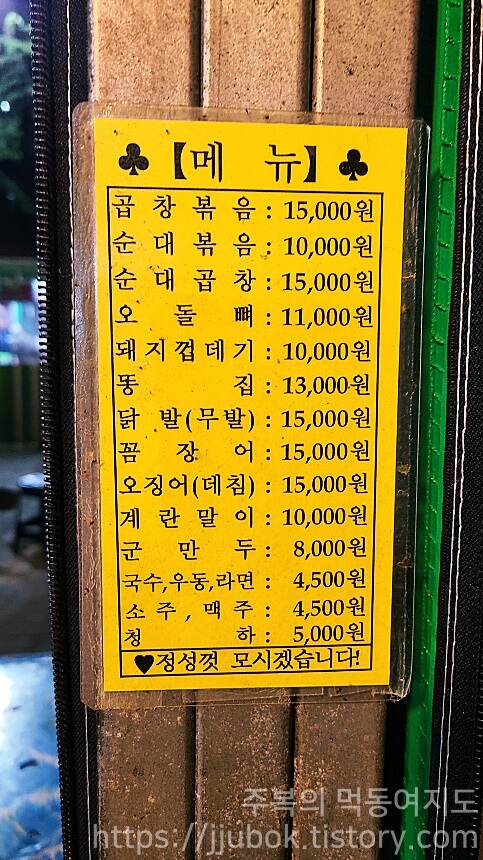 ♣【메 뉴】♣
곱창볶음 : 15,000원
순대볶음 : 10,000원
순대곱창 : 15,000원
오돌뼈 : 11,000원
돼지껍데기 : 10,000원
똥집 : 13,000원
닭발(무발) : 15,000원
꼼장어 : 15,000원
오징어(데침) : 15,000원
계란말이 : 10,000원
군만두 : 8,000원
국수,우동,라면 : 4,500원
소주,맥주 : 4,500원
청하 : 5,000원
♥정성껏 모시겠습니다!
주복의 먹동여지도
https://jjubok.tistory.com